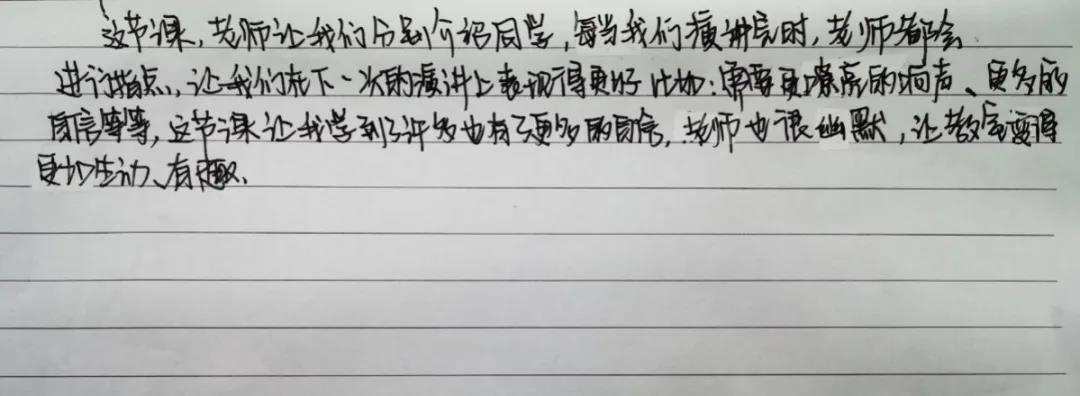 这节课,老师让我们分别介绍同学,每当我们演讲完时,老师都会
进行指点,让我们在下一次的演讲上表现得更好 比如:需要更嘹亮的响声、更多的
自信等等,这节课让我学到了许多也有了更多的自信,老师也很幽默,让教室变得
更加生动、有趣、